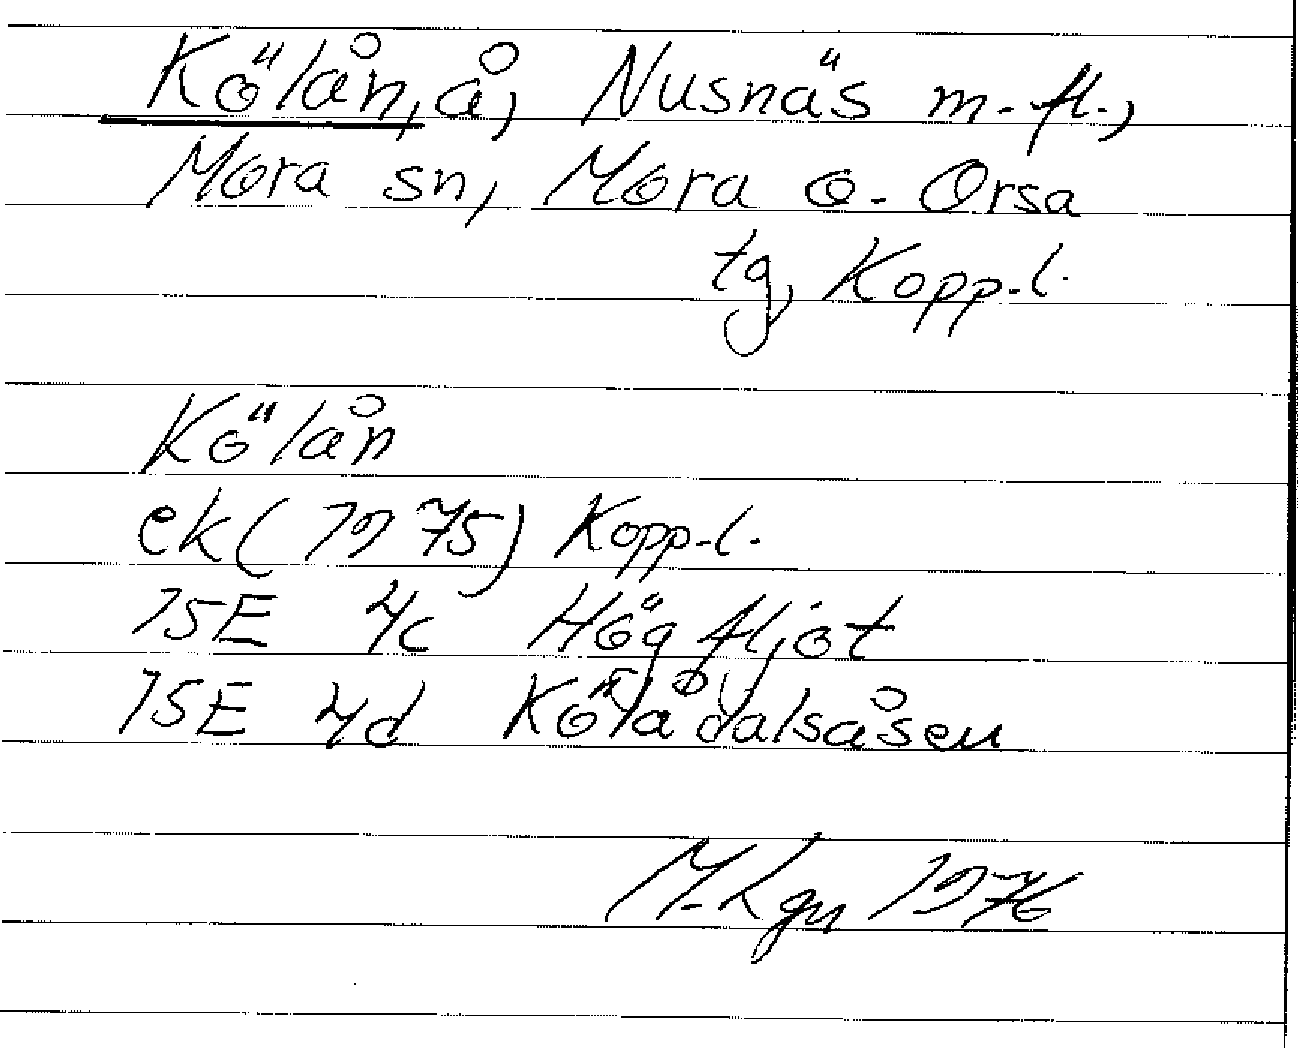 Kölån, å, Nusnäs m.fl.,
Mora sn, Mora o. Orsa
tg, Kopp.l.
Kölån
ek (1975) Kopp.l.
15E 4c Högfljot
15E 4d Kölådalsåsen
1976